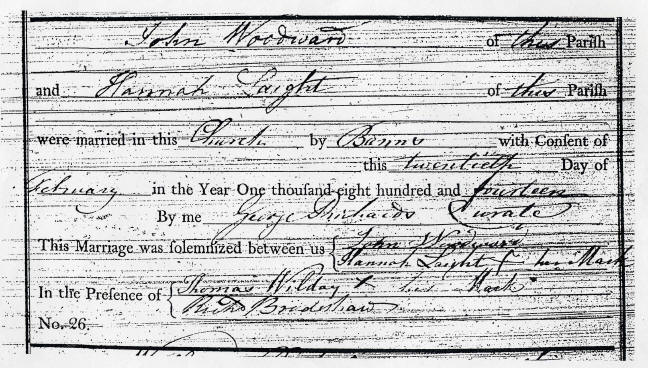 John Woodward of this Pariſh
and Hannah Laight of this Pariſh
were married in this Church by Banns with Conſent of
this twentieth Day of
February in the Year One thouſand eight hundred and fourteen
By me George Richards Curate
This Marriage was ſolemnized between us John Woodward
Hannah Laight her Mark
In the Preſence of Thomas Wilday X his Mark
Richd Bradshaw
No. 26.